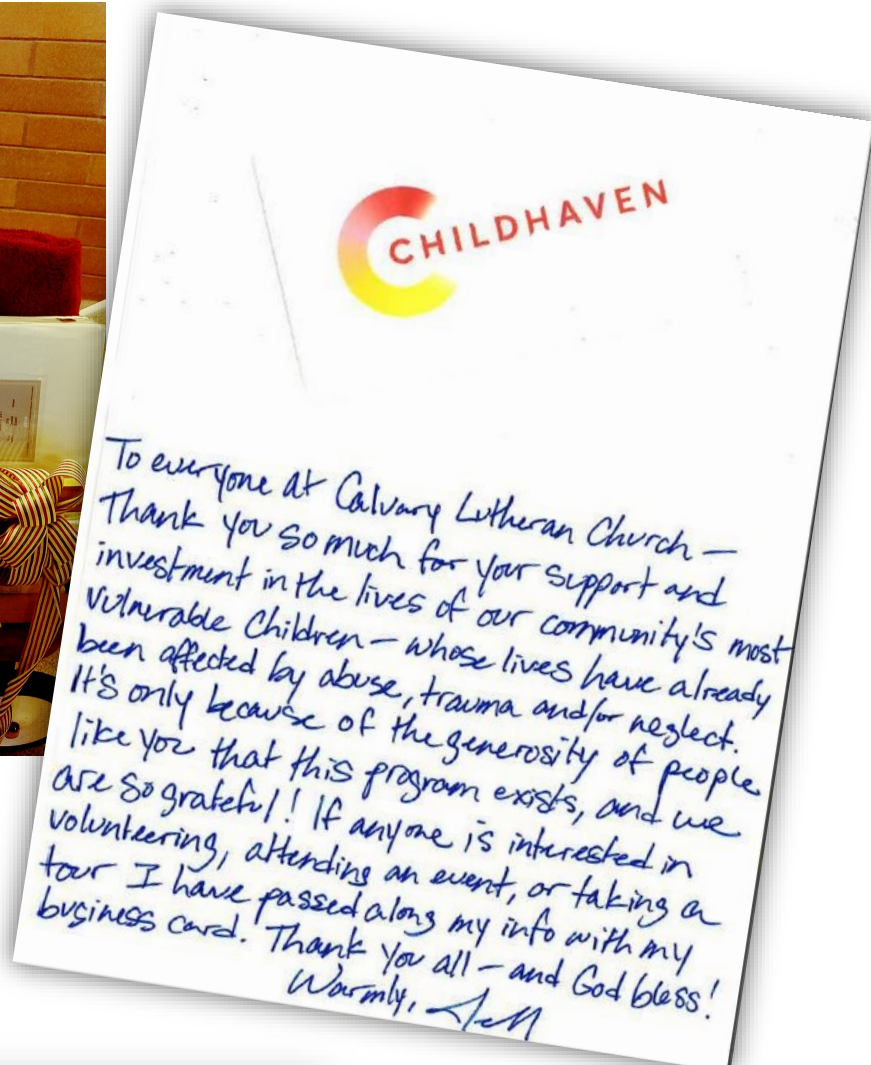 CHILDHAVEN
To everyone at Calvary Lutheran Church –
Thank you so much for your support and
investment in the lives of our community's most
vulnerable Children – whose lives have already
been affected by abuse, trauma and/or neglect.
It's only because of the generosity of people
like you that this program exists, and we
are so grateful! If anyone is interested in
volunteering, attending an event, or taking a
tour I have passed along my info with my
business card. Thank you all – and God bless!
Warmly,